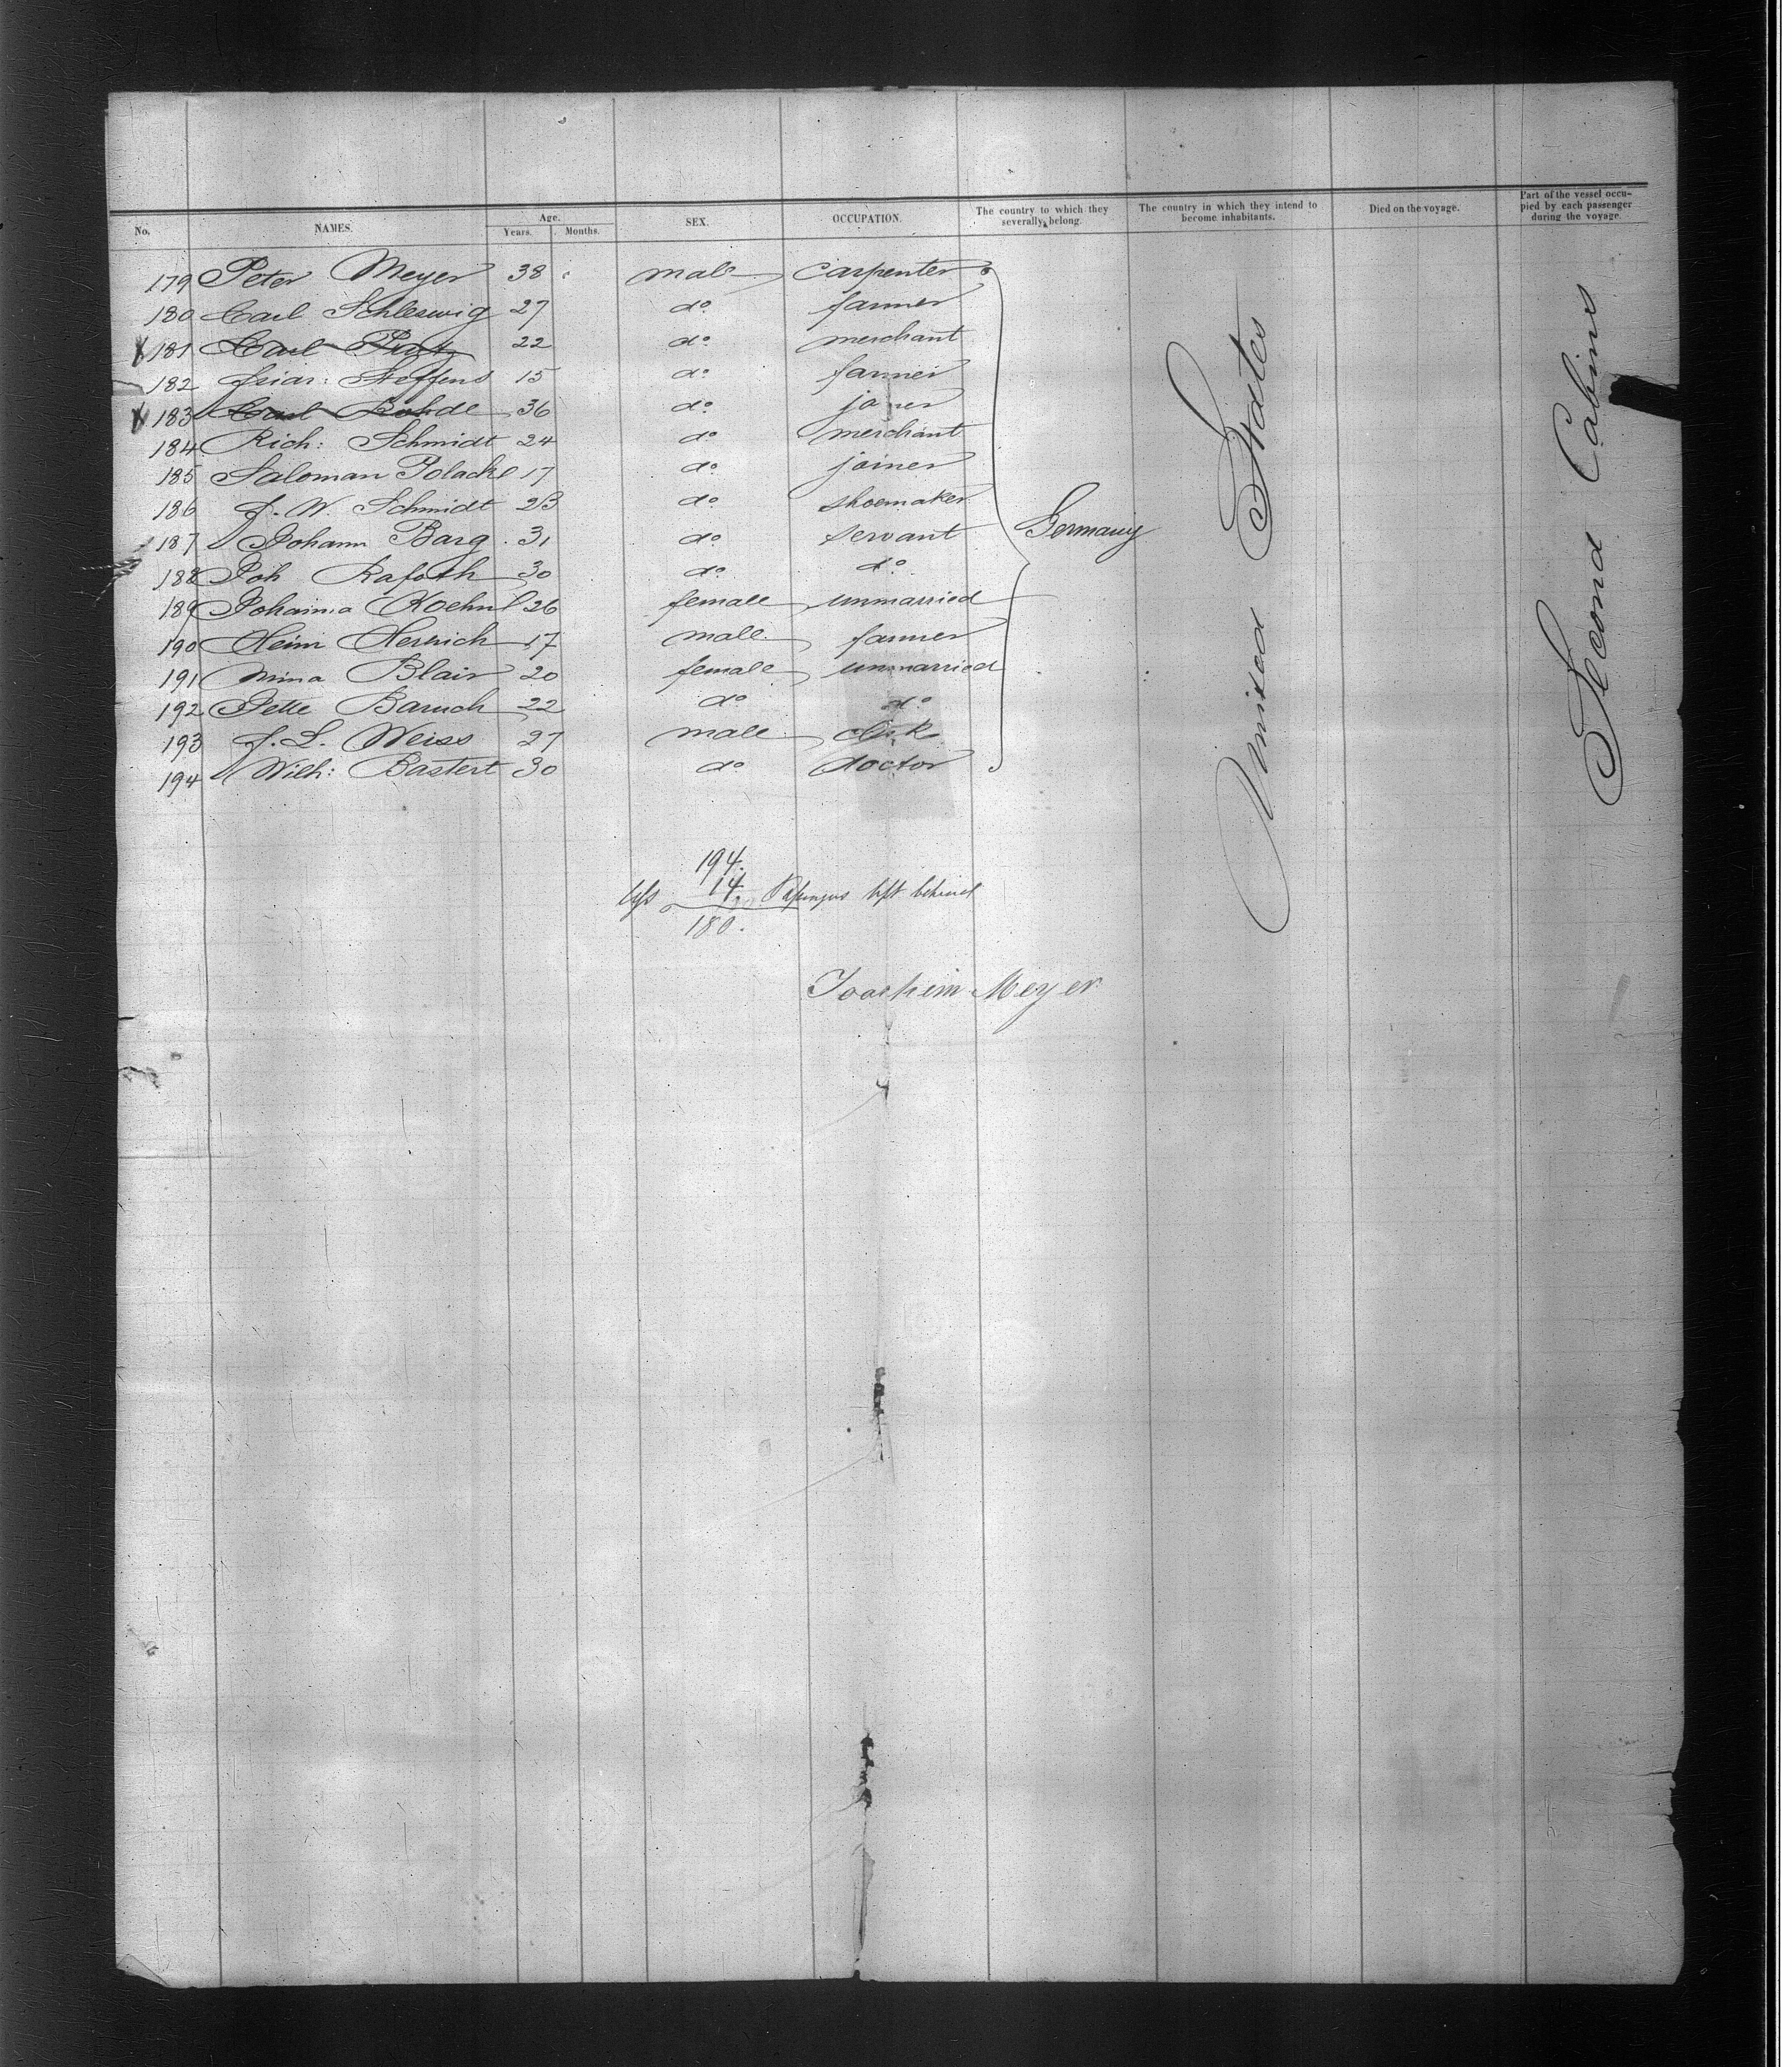 No. NAMES. Age. Years. Months. SEX. OCCUPATION. The country to which they severally belong. The country in which they intend to become inhabitants. Died on the voyage. Part of the vessel occupied by each passenger during the voyage.
179 Peter Meyer 38 male carpenter
180 Carl Schleswig 27 do farmer
181 Carl 22 do merchant
182 Steffens 15 do farmer
183 Carl Rohde 36 do joiner
184 Rich: Schmidt 24 do merchant
185 Saloman Polacke 17 do joiner
186 J. W. Schmidt 23 do shoemaker
187 Johann Barg 31 do servant
188 Joh Rafoth 30 do do
189 Johanna 26 female unmarried
190 Heinr 17 male farmer
191 Mina Blair 20 female unmarried
192 Jette Baruch 22 do do
193 J. L. Weiss 27 male clerk
194 Wilh: Bastert 30 do doctor
Germany
United States
Second Cabins
194.
less 14. Passengers left behind
180.
Joachim Meyer